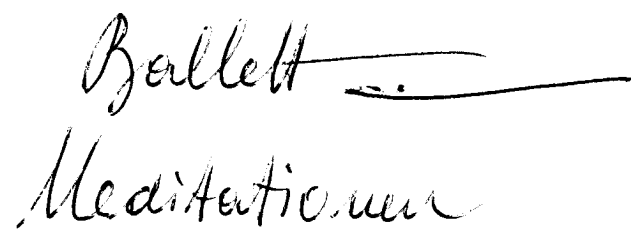 Ballett
Meditationen